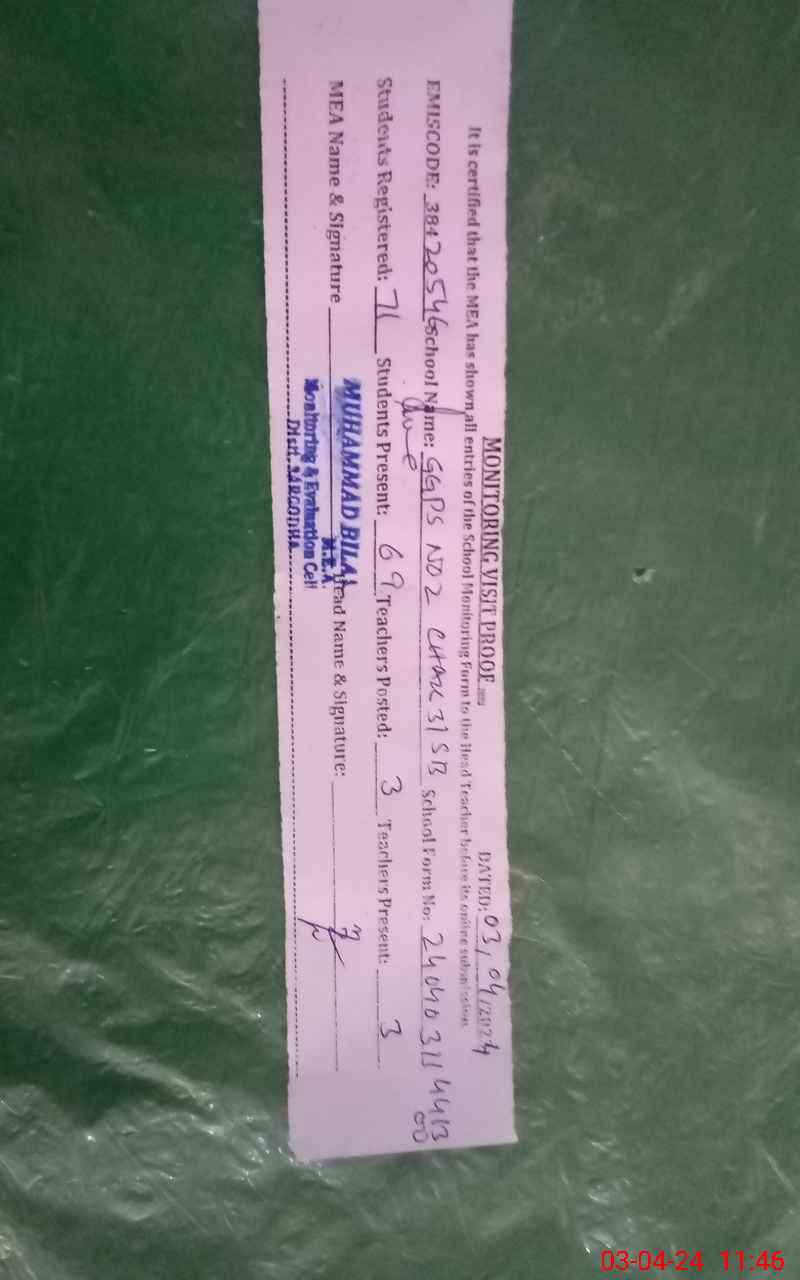 MONITORING VISIT PROOF
DATED: 03/04/2024
It is certified that the MEA has shown all entries of the School Monitoring Form to the Head Teacher before its online submission.
EMISCODE: 38420546 School Name: GGPS NO 2 CHAK 31 SB School Form No: 240403114413
Students Registered: 71 Students Present: 69 Teachers Posted: 3 Teachers Present: 3
MEA Name & Signature Head Name & Signature:
MUHAMMAD BILAL
M.E.A.
Monitoring & Evaluation Cell
Distt. SARGODHA
03-04-24 11:46